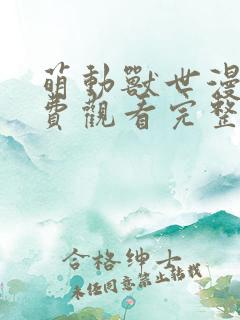 萌動獸世漫
費觀看完整
合格绅士
未经同意禁止转载